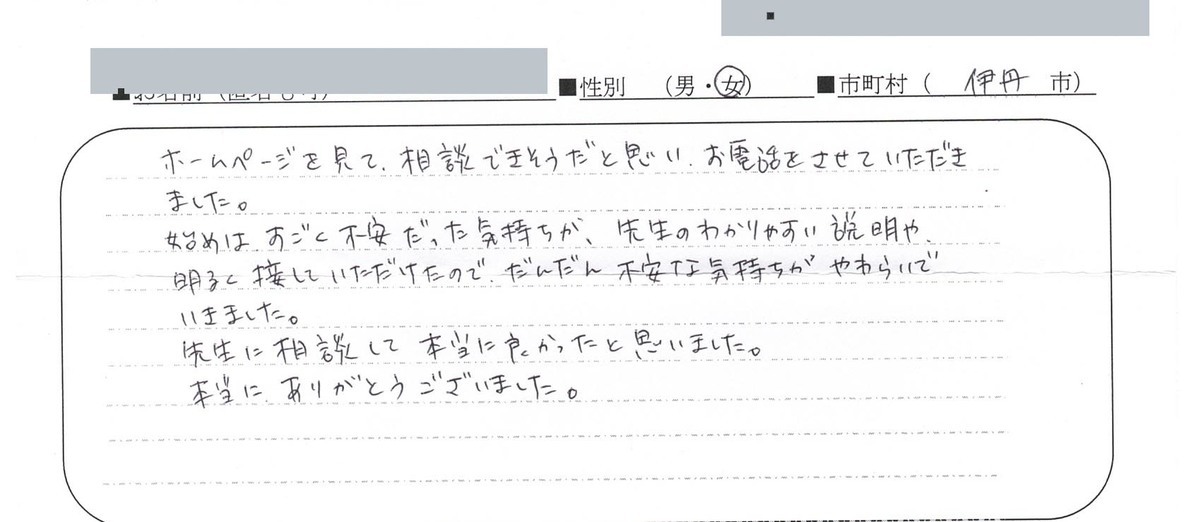 ■性別 (男・女) ■市町村( 伊丹 市)
ホームページを見て、相談できそうだと思い、お電話をさせていただき
ました。
始めは、すごく不安だった気持ちが、先生のわかりやすい説明や、
明るく接していただけたので、だんだん不安な気持ちがやわらいで
いきました。
先生に相談して本当に良かったと思いました。
本当に、ありがとうございました。